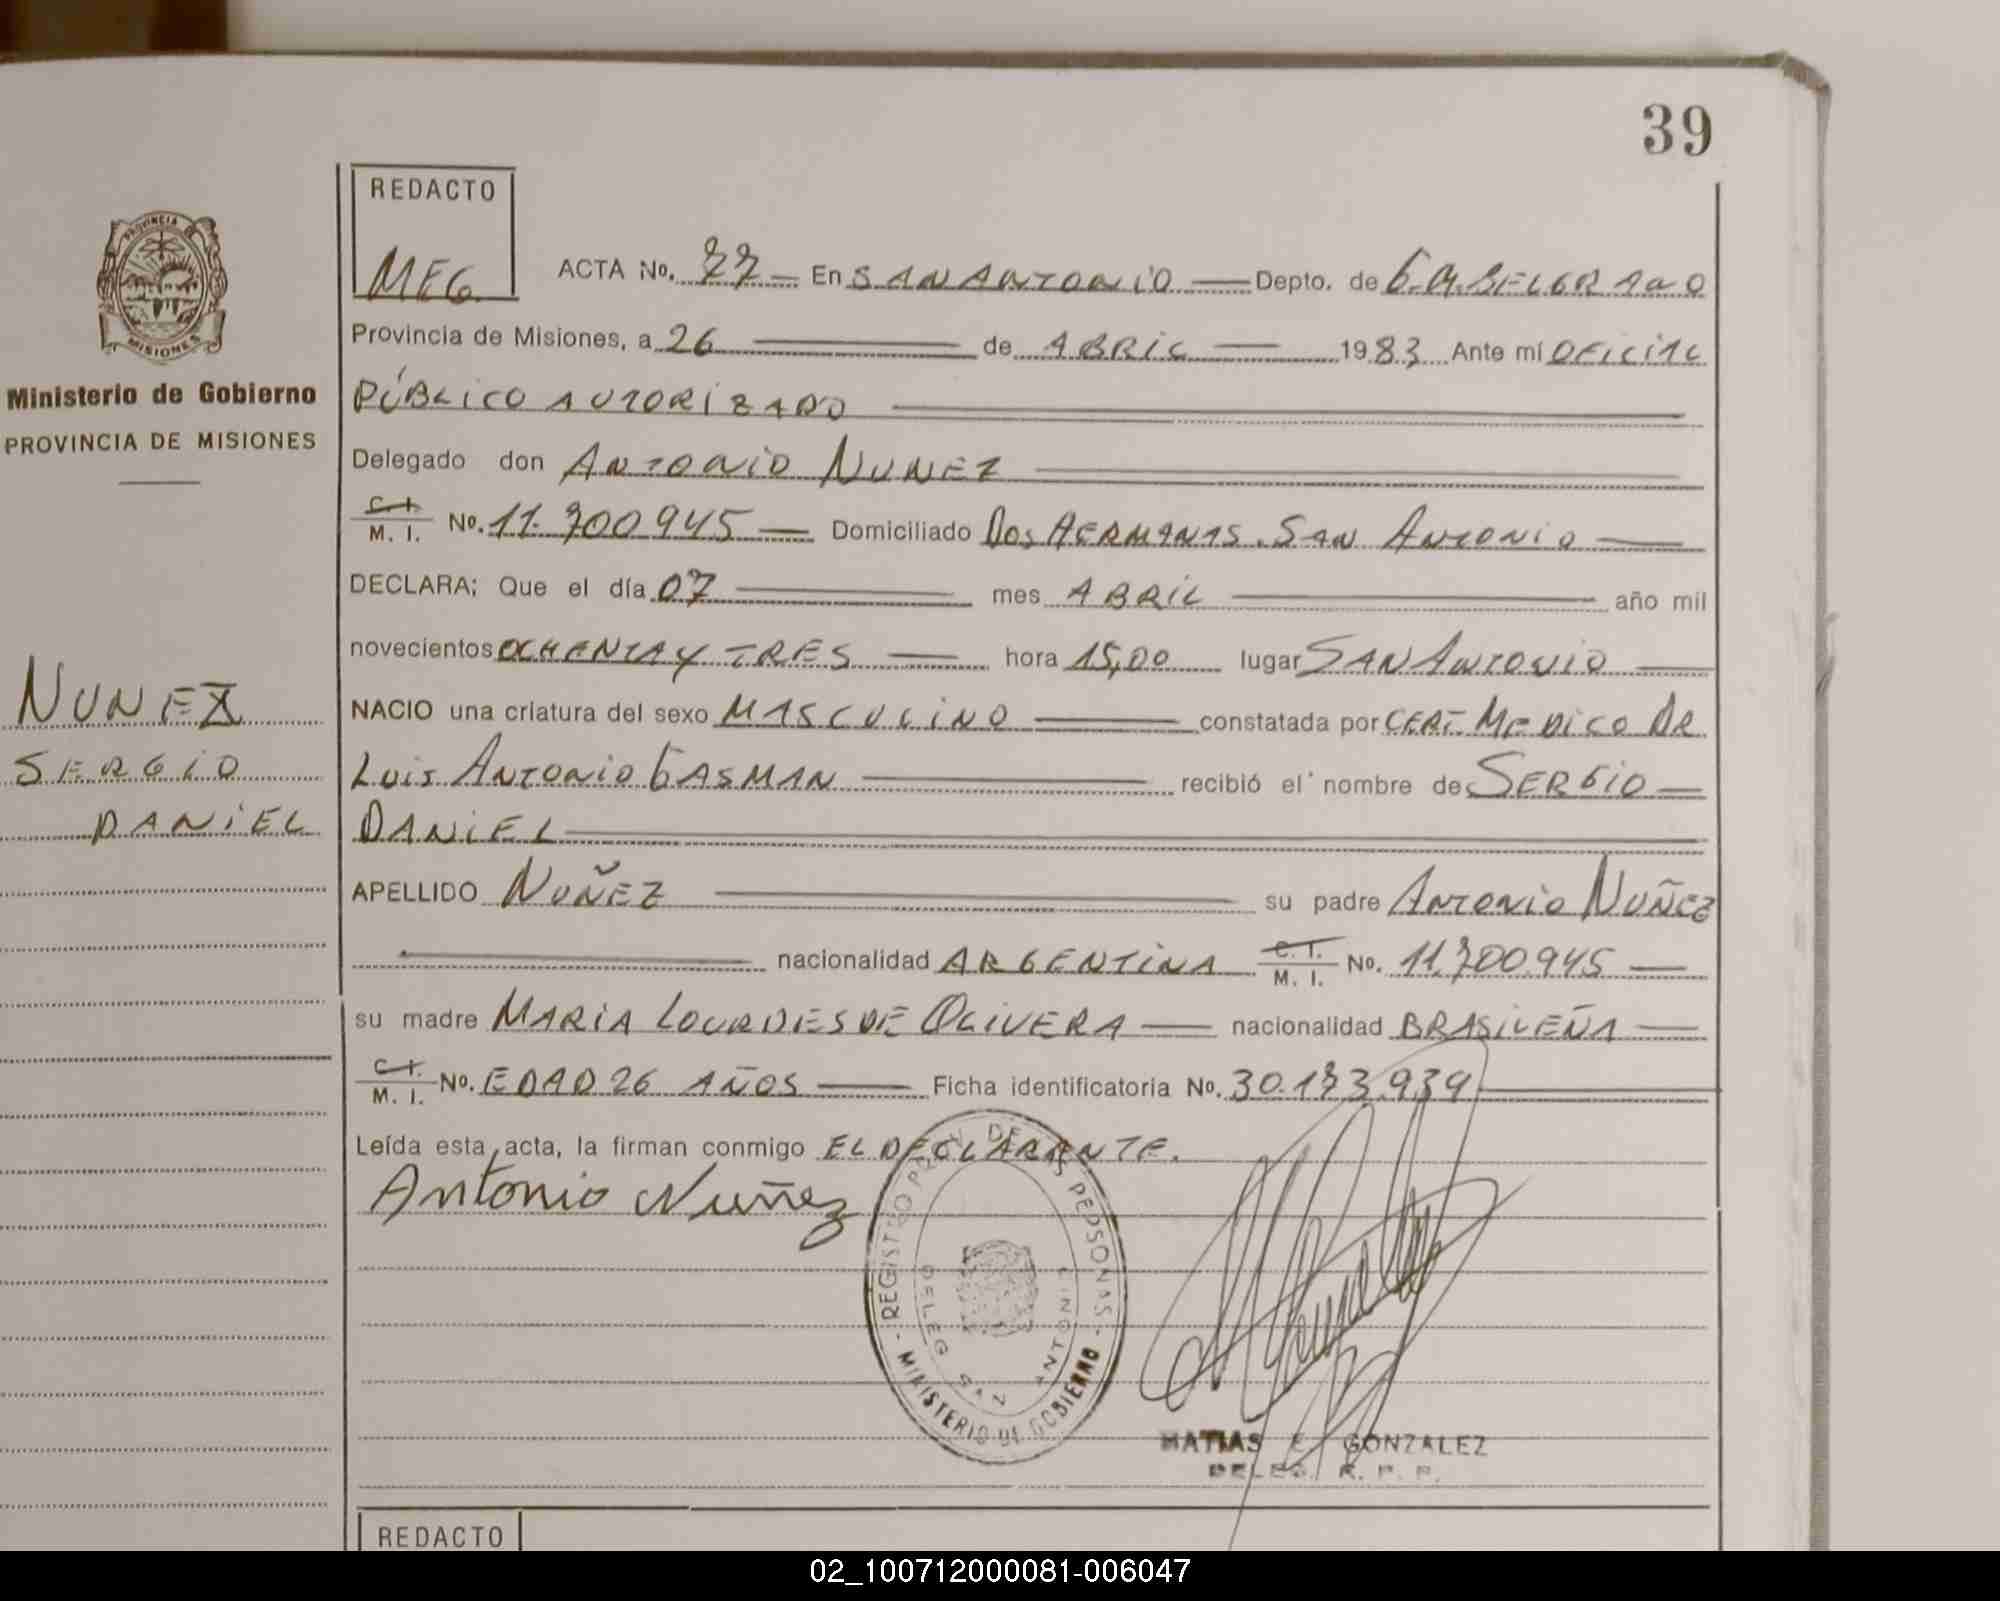 39
REDACTO
MEG.
PROVINCIA
MISIONES
Ministerio de Gobierno
PROVINCIA DE MISIONES
NUNEZ
SERGIO
DANIEL
ACTA No. 77 — En SAN ANTONIO — Depto. de G.M.BELGRANO
Provincia de Misiones, a 26 — de ABRIL — 1983 Ante mí OFICIAL
PÚBLICO AUTORIZADO —
Delegado don ANTONIO NUNEZ —
C.I. M. I. No. 11.700945 — Domiciliado DOS HERMANAS. SAN ANTONIO —
DECLARA; Que el día 07 — mes ABRIL — año mil
novecientos OCHENTA Y TRES — hora 15,00 lugar SAN ANTONIO —
NACIO una criatura del sexo MASCULINO — constatada por CERT. MEDICO DR
LUIS ANTONIO GASMAN — recibió el nombre de SERGIO —
DANIEL —
APELLIDO NUÑEZ — su padre ANTONIO NUÑEZ
— nacionalidad ARGENTINA C.I. M. I. No. 11.700.945 —
su madre MARIA LOURDES DE OLIVERA — nacionalidad BRASILEÑA —
C.I. M. I. No. EDAD 26 AÑOS — Ficha identificatoria No. 30.173.939 —
Leída esta acta, la firman conmigo EL DECLARANTE.
Antonio Nuñez
REGISTRO PROV. DE LAS PERSONAS - MINISTERIO DE GOBIERNO -
DELEG. SAN ANTONIO
MATIAS E. GONZALEZ
DELEG. R. P. P.
REDACTO
02_100712000081-006047